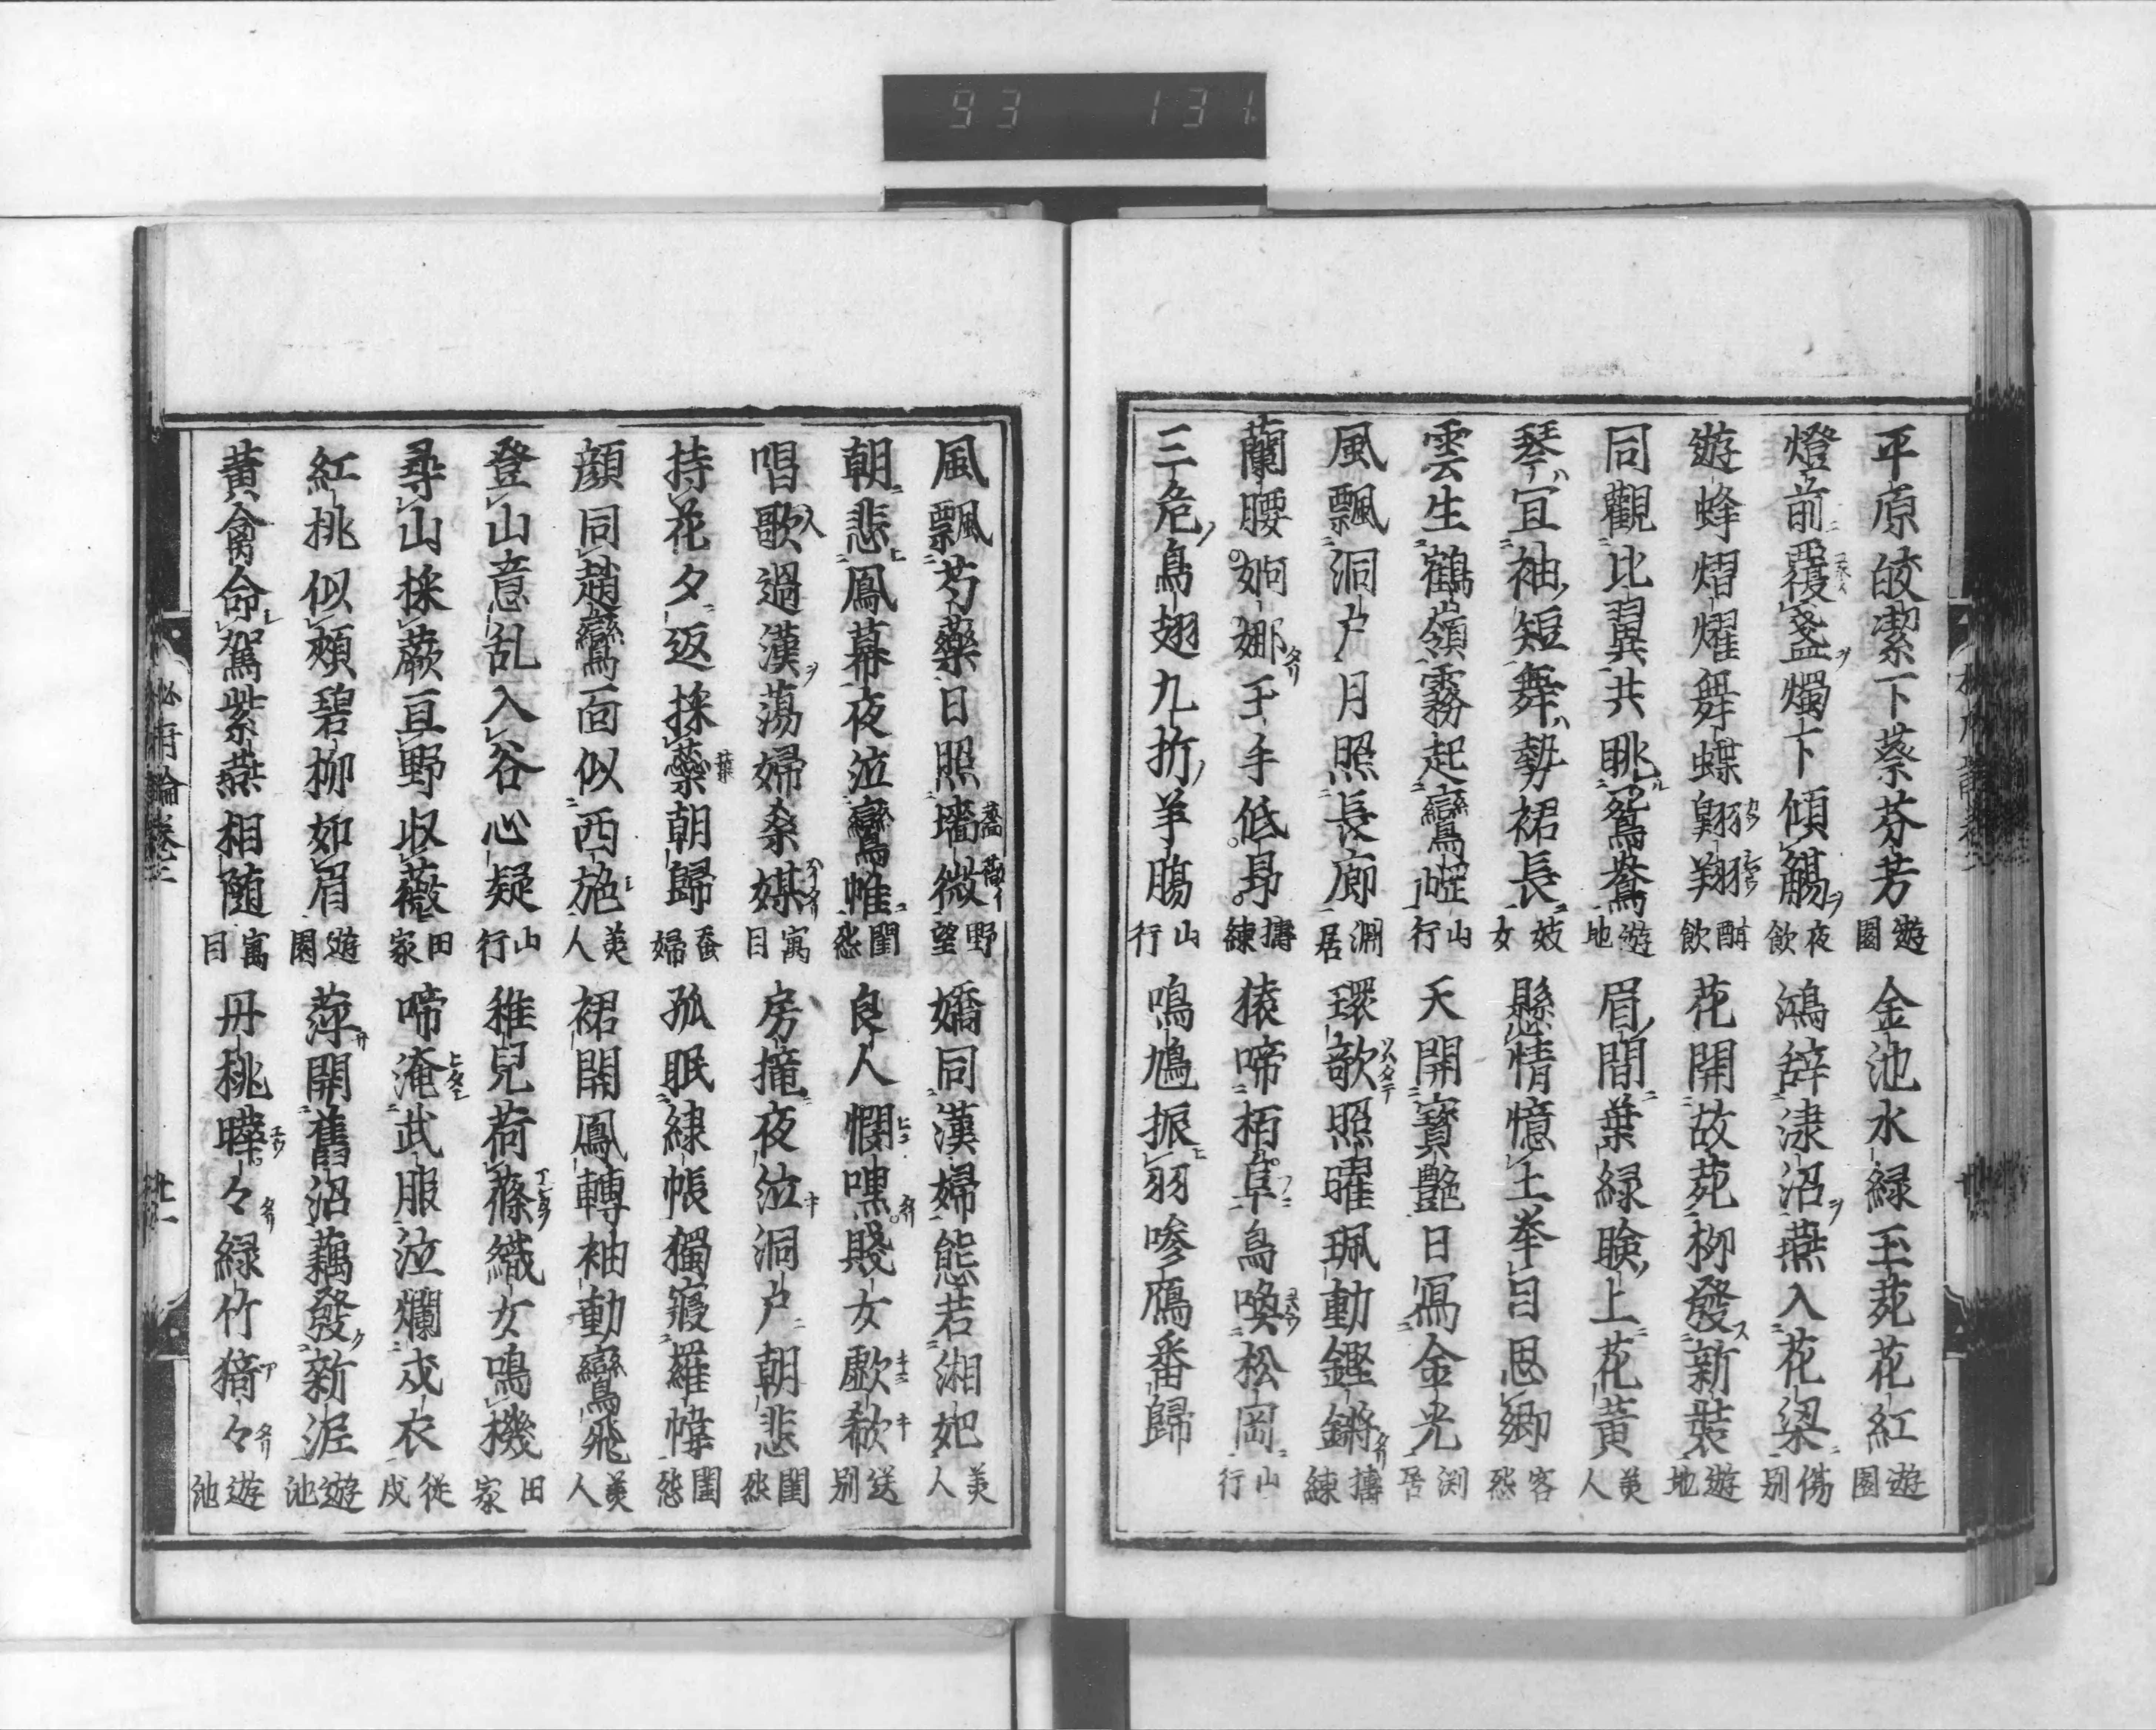 93 131
平原皎潔下蔡芬芳遊園 金池水緑玉菀花紅遊園
燈前覆盞燭下傾觴夜飲 鴻辞沼燕入花梁傷別
遊蜂熠燿舞蝶翺翔酣飲 花開故菀柳發新裝遊地
同觀比翼共眺鴛鴦遊地 眉間葉緑瞼上花黃美人
琴宜袖短舞勢裙長妓女 懸情憶土挙目思郷客怨
雲生鶴嶺霧起鸞崆山行 天開寳艶日寫金光渕居
風飄洞戸月照長廊渕居 環欹照曜珮動鏗鏘擣練
蘭腰婀娜玉手低昂擣練 猿啼栢阜鳥喚松岡山行
三危鳥翅九折羊腸山行 鳴鳩振羽嘇鴈番歸
風飄芍藥日照墻微野望 嬌同漢婦態若湘妃美人
朝悲鳳幕夜泣鸞帷閨怨 良人憫嘿賤女歔欷送別
唱歌過漢蕩婦桑媒寓目 房掩夜泣洞戸朝悲閨怨
持花夕返採蘂朝歸蚕婦 孤眠帳獨寢羅幃閨怨
顔同趙鸞面似西施美人 裙開鳳轉袖動鸞飛美人
登山意乱入谷心疑山行 稚兒荷蓧織女鳴機田家
尋山採蕨亘野収薇田家 啼淹武服泣爛戎衣従戍
紅桃似頬碧柳如眉遊園 萍開舊沼藕發新泥遊池
黃禽命駕紫燕相随寓目 丹桃曄々緑竹猗々遊池